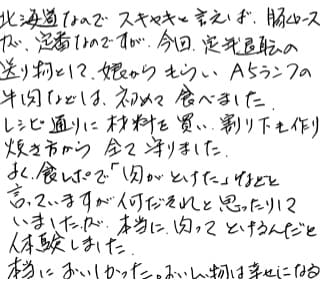 北海道なので スキヤキと言えば、豚ロース
が、定番なのですが、今回、定年退職の
送り物として、娘から もらい A5ランクの
牛肉などは、初めて 食べました。
レシピ通りに 材料を買い、割り下も作り
焼き方から 全て 守りました。
よく食レポで「肉がとけた」などと
言っていますが何だそれと思ったりして
いましたが、本当に、肉って とけるんだと
体験しました
本当に おいしかった。おいしい物は幸せになる